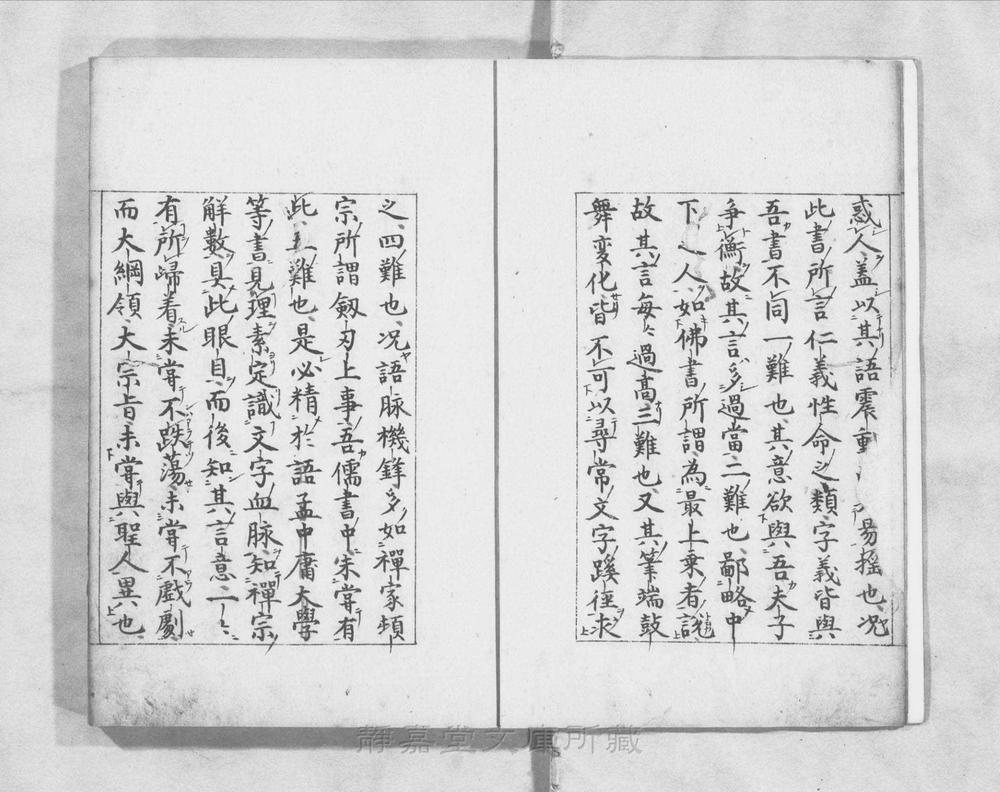 惑人、盖以其語震動 易揺也、况
此書所言仁義性命之類字義皆與
吾書不同一難也、其意欲與吾夫子
争衡、故其言多過當二難也、鄙略中
下之人、如佛書所謂為最上乗者説
故其言毎〻過高三難也又其筆端鼓
舞変化皆不可以尋常文字蹊徑求
之、四難也、况語脉機鋒多如禪家頓
宗所謂劔刃上事、吾儒書中未嘗有
此、五難也、是必精於語孟中庸大學
等書見理素定識文字血脉、知禪宗
解數具此眼目、而後知其言意一〻
有所歸着、未嘗不跌蕩、未嘗不戲劇
而大綱領、大宗旨未嘗與聖人異也、
静嘉堂文庫所藏